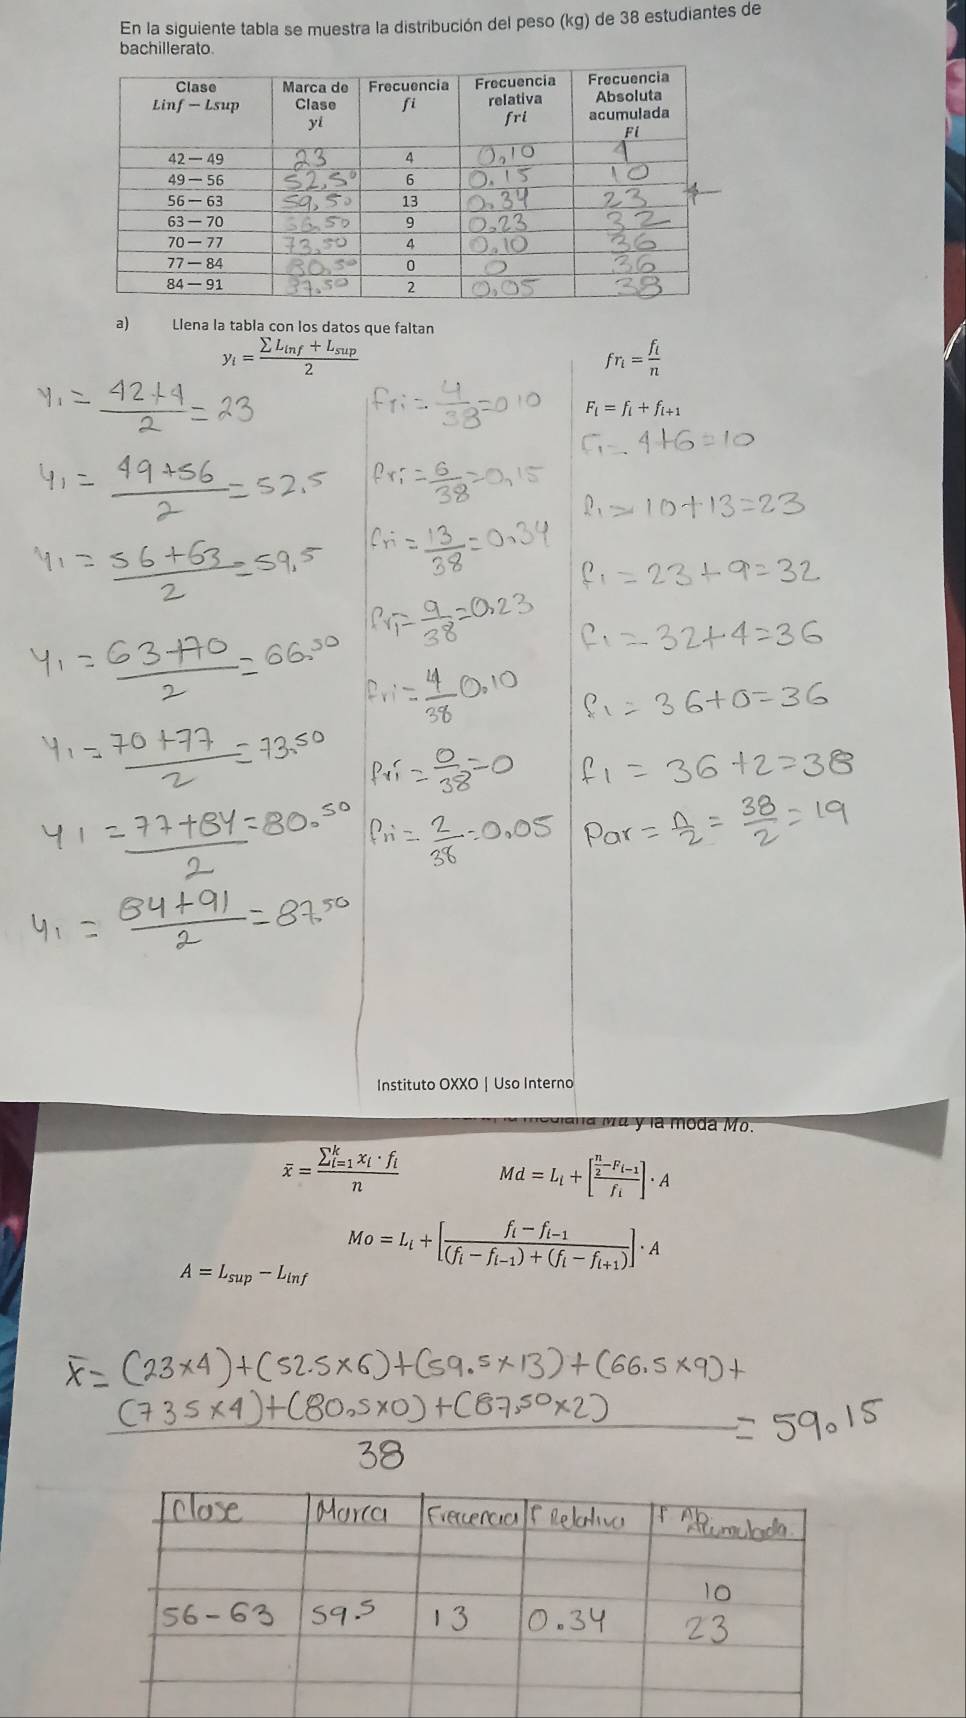 En la siguiente tabla se muestra la distribución del peso (kg) de 38 estudiantes de
bachillerato.
Clase Linf – Lsup | Marca de Clase yi | Frecuencia fi | Frecuencia relativa fri | Frecuencia Absoluta acumulada Fi
42 – 49 | 23 | 4 | 0,10 | 4
49 – 56 | 52,50 | 6 | 0.15 | 10
56 – 63 | 59,50 | 13 | 0.34 | 23
63 – 70 | 66,50 | 9 | 0.23 | 32
70 – 77 | 73,50 | 4 | 0.10 | 36
77 – 84 | 80,50 | 0 | 0 | 36
84 – 91 | 87,50 | 2 | 0,05 | 38
a) Llena la tabla con los datos que faltan
y_i = (∑ L_inf + L_sup)/2
fr_i = f_i/n
F_i = f_i + f_{i+1}
y1 = (42+4)/2 = 23
y1 = (49+56)/2 = 52.5
y1 = (56+63)/2 = 59,5
y1 = (63+70)/2 = 66.50
y1 = (70+77)/2 = 73.50
y1 = (77+84)/2 = 80.50
y1 = (84+91)/2 = 87.50
fri = 4/38 = 010
fri = 6/38 = 0,15
fri = 13/38 = 0.34
fri = 9/38 = 0,23
fri = 4/38 0,10
fri = 0/38 = 0
fri = 2/38 = 0.05
f1 = 4+6 = 10
f1 = 10+13 = 23
f1 = 23+9 = 32
f1 = 32+4 = 36
f1 = 36+0 = 36
f1 = 36+2 = 38
Par = n/2 = 38/2 = 19
Instituto OXXO | Uso Interno
mediana Md y la moda Mo.
x̄ = (∑_{i=1}^{k} x_i · f_i)/n
Md = L_i + [(n/2 − F_{i−1})/f_i] · A
Mo = L_i + [(f_i − f_{i−1})/((f_i − f_{i−1}) + (f_i − f_{i+1}))] · A
A = L_sup − L_inf
x̄ = (23×4)+(52.5×6)+(59.5×13)+(66.5×9)+
(735×4)+(80.5×0)+(87,50×2)
38
= 59.15
Clase | Marca | Frecuencia | f Relativa | f Acumulada
10
56-63 | 59.5 | 13 | 0.34 | 23